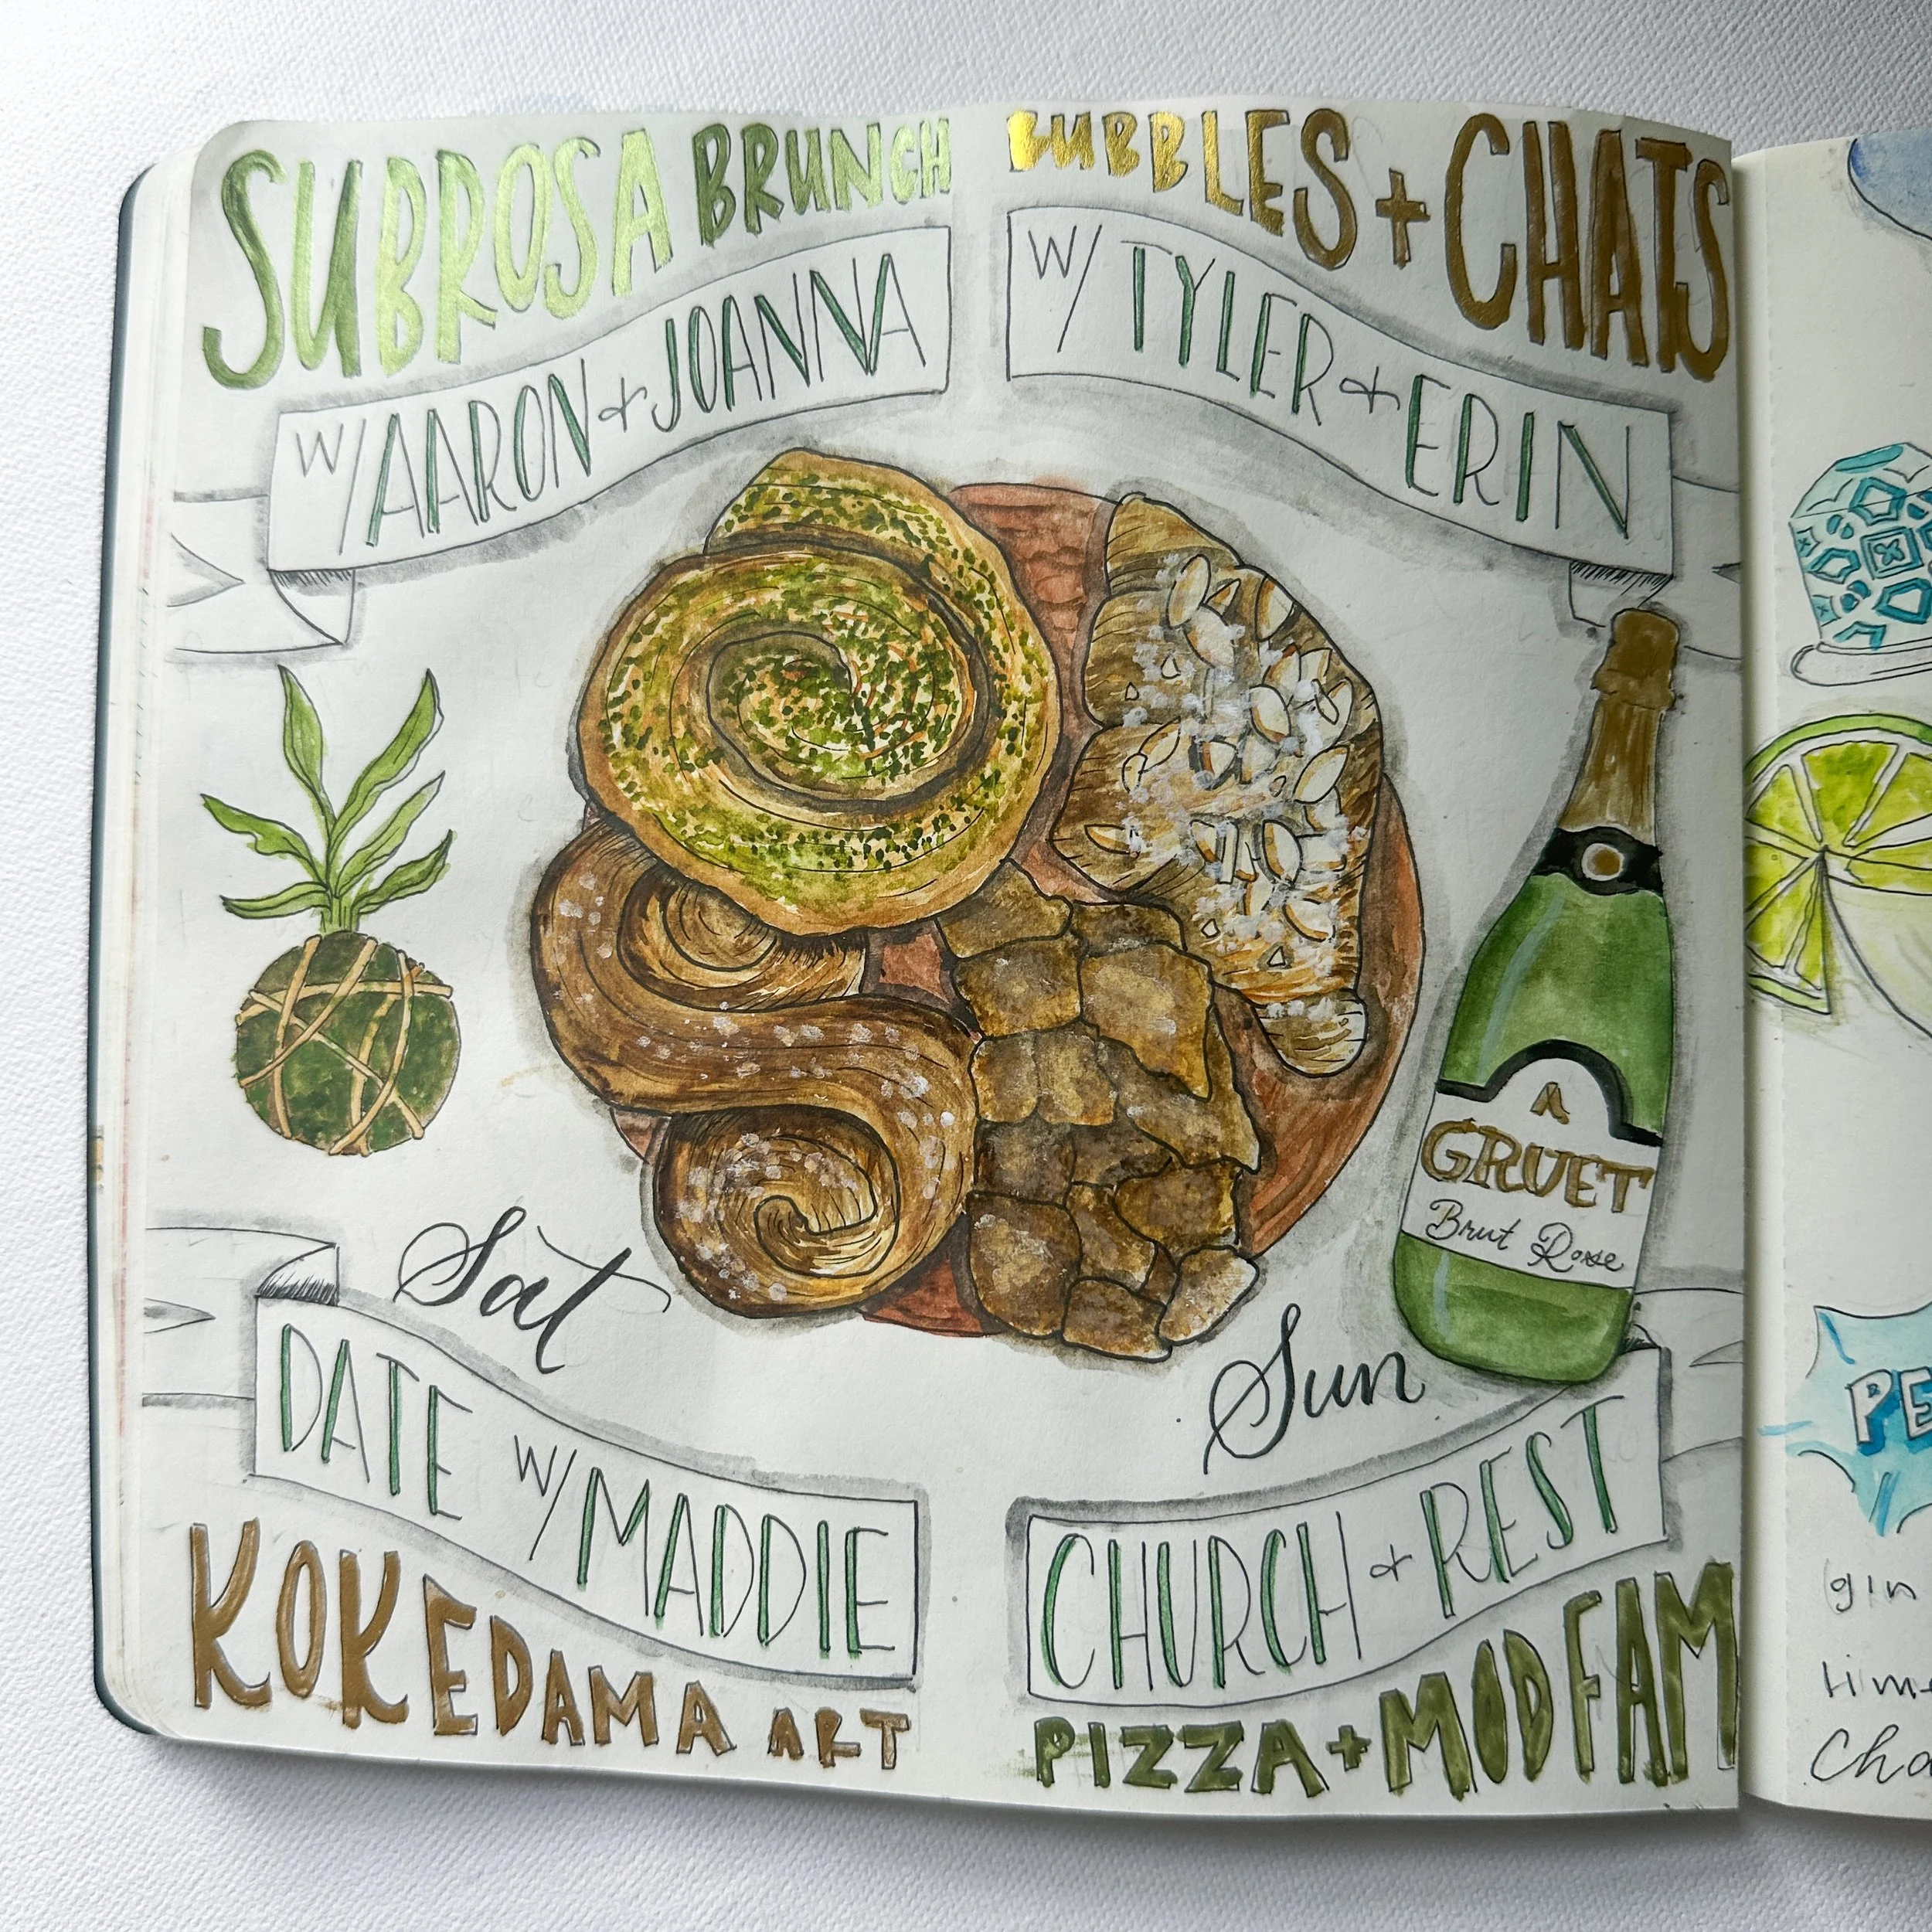 SUBROSA BRUNCH
W/ AARON + JOANNA
BUBBLES + CHATS
W/ TYLER + ERIN
A
GRUET
Brut Rose
Sat
DATE W/ MADDIE
KOKEDAMA ART
Sun
CHURCH + REST
PIZZA + MOD FAM
PE
gin
lime
Cha